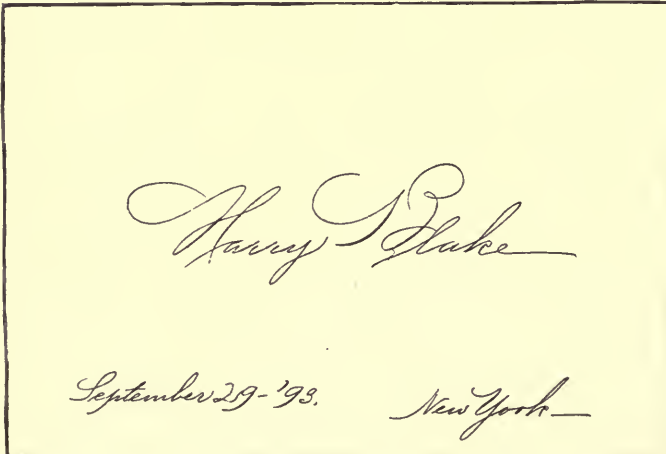 Harry Blake
September 29-'93. New York—